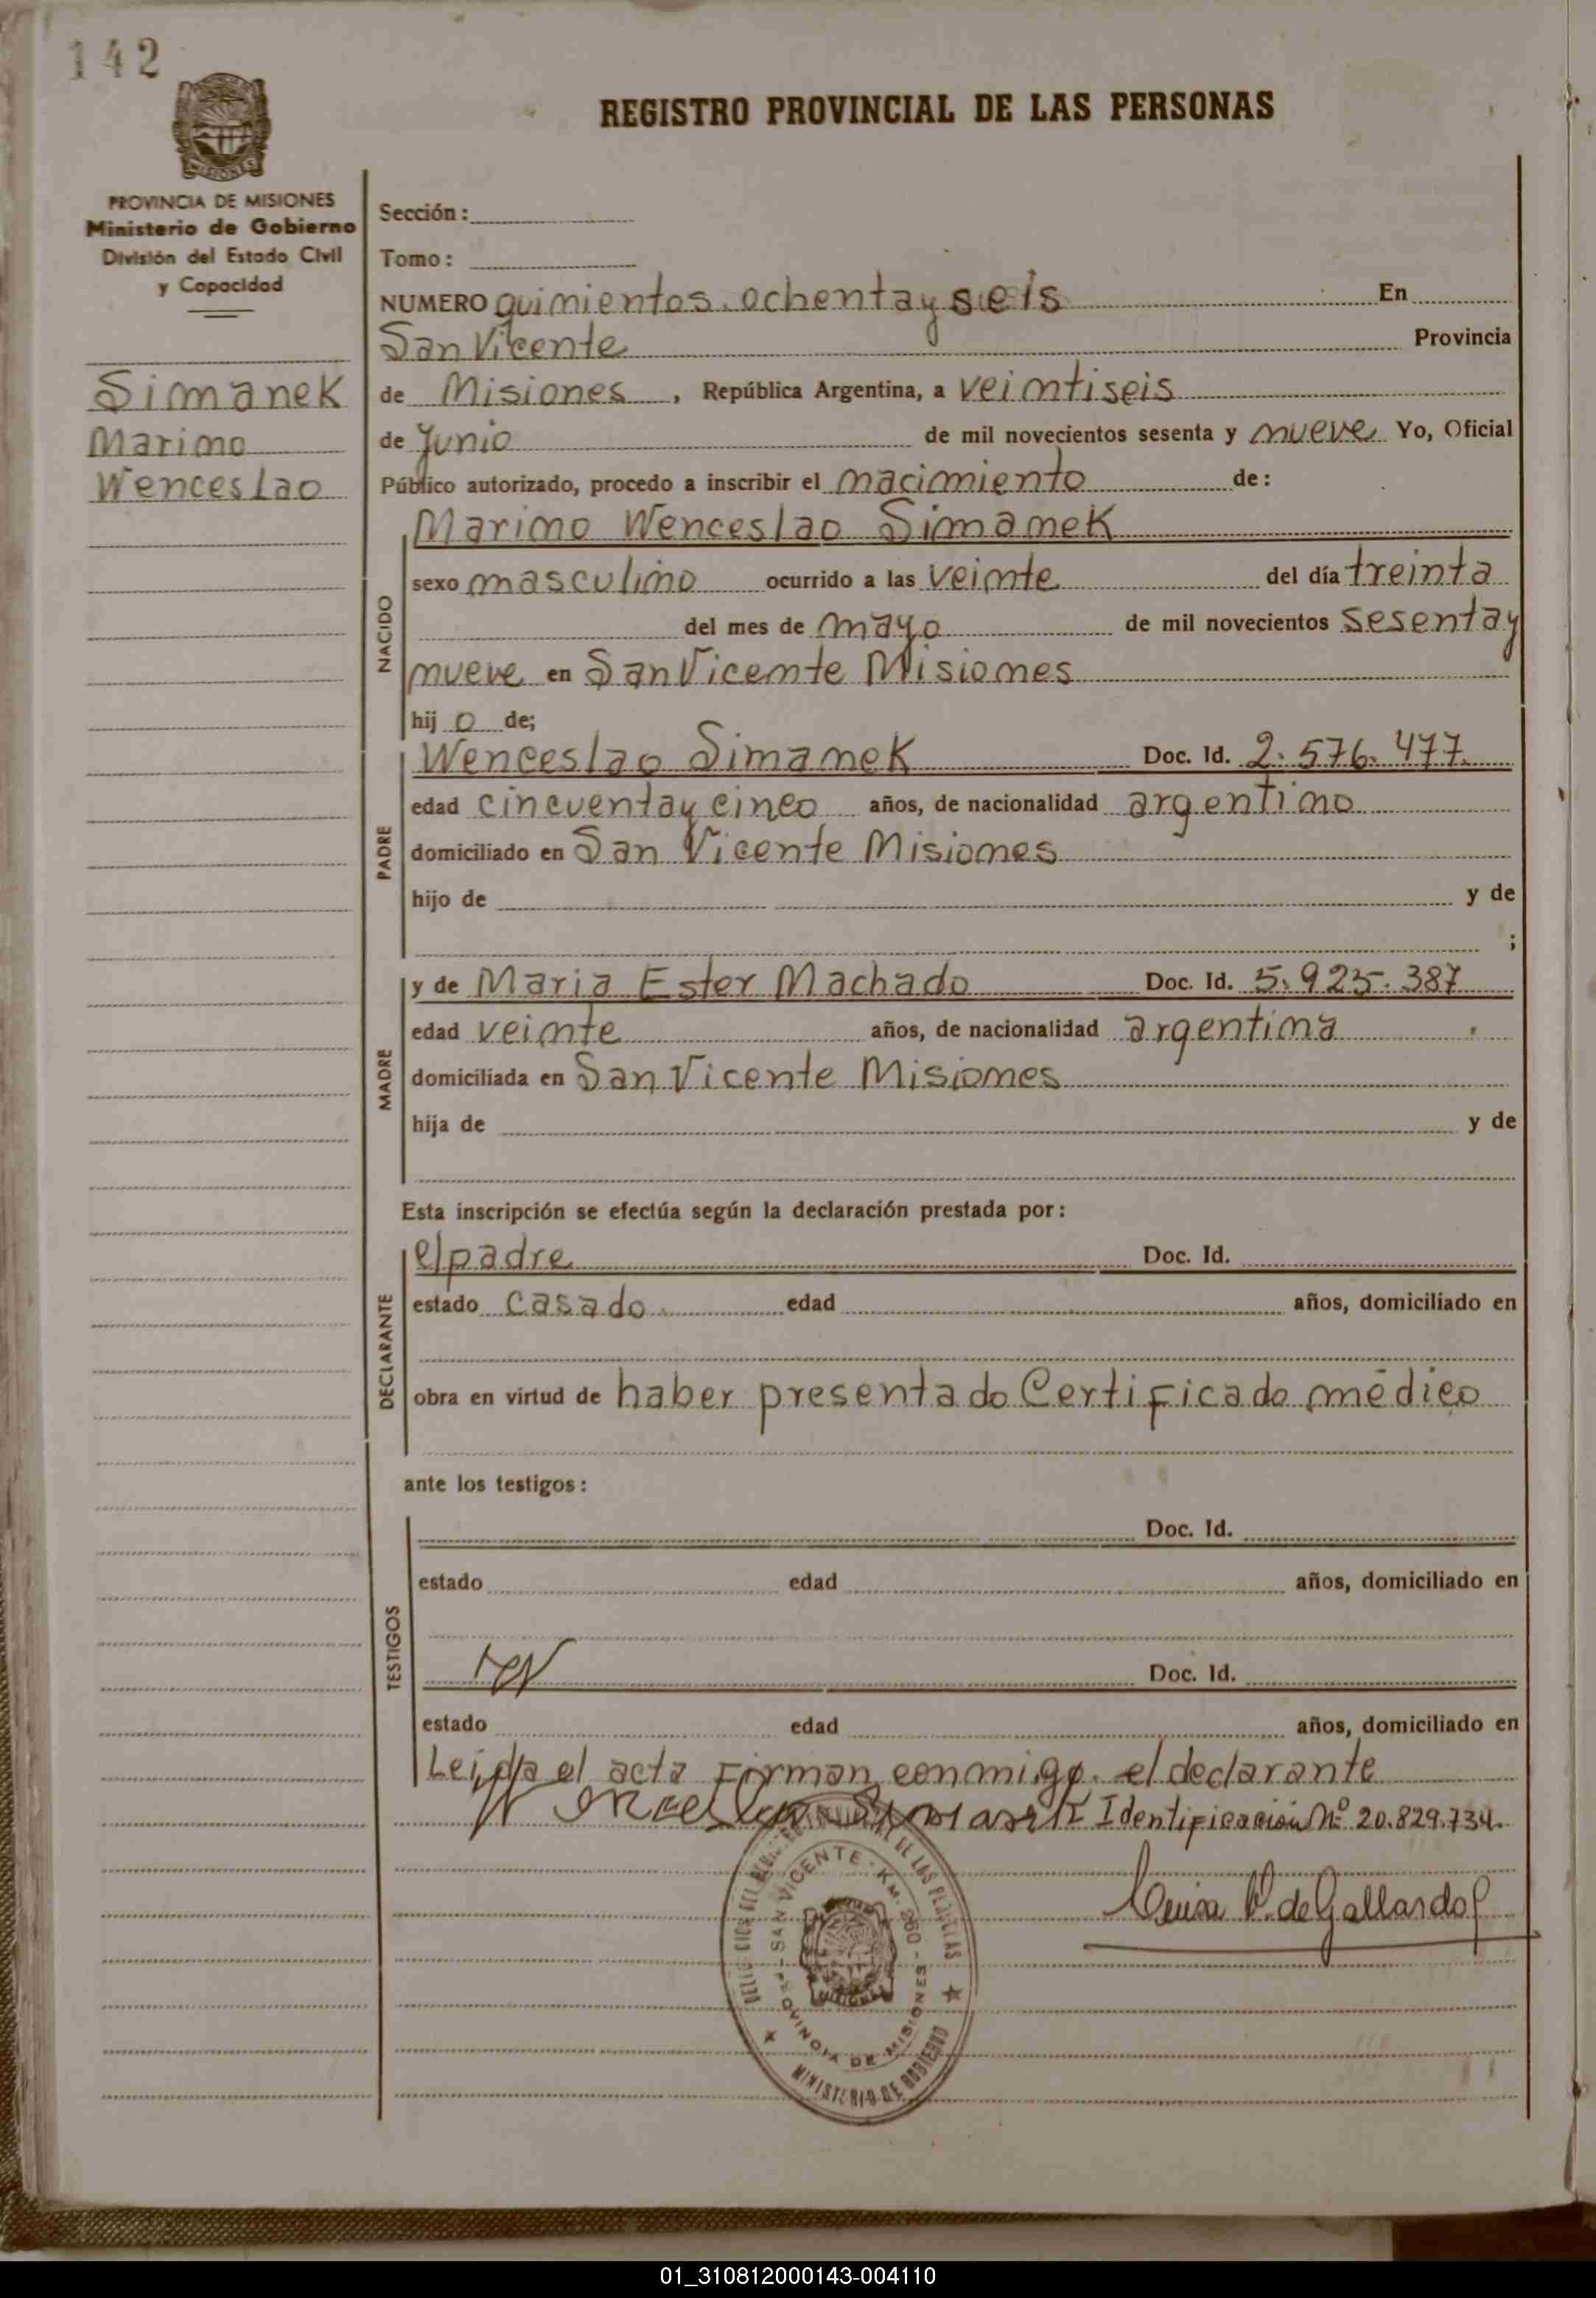 142
REGISTRO PROVINCIAL DE LAS PERSONAS
MISIONES
PROVINCIA DE MISIONES
Ministerio de Gobierno
División del Estado Civil
y Capacidad
Simanek
Marino
Wenceslao
Sección:
Tomo:
NUMERO quinientos ochenta y seis En
San Vicente Provincia
de Misiones, República Argentina, a veintiseis
de Junio de mil novecientos sesenta y nueve Yo, Oficial
Público autorizado, procedo a inscribir el nacimiento de:
NACIDO
Marino Wenceslao Simanek
sexo masculino ocurrido a las veinte del día treinta
del mes de mayo de mil novecientos sesenta y
nueve en San Vicente Misiones
hij o de;
PADRE
Wenceslao Simanek Doc. Id. 2.576.477
edad cincuenta y cinco años, de nacionalidad argentino
domiciliado en San Vicente Misiones
hijo de y de
;
MADRE
y de Maria Ester Machado Doc. Id. 5.925.387
edad veinte años, de nacionalidad argentina
domiciliada en San Vicente Misiones
hija de y de
Esta inscripción se efectúa según la declaración prestada por:
DECLARANTE
el padre Doc. Id.
estado casado edad años, domiciliado en
obra en virtud de haber presentado Certificado médico
ante los testigos:
TESTIGOS
Doc. Id.
estado edad años, domiciliado en
Doc. Id.
estado edad años, domiciliado en
Leida el acta Firman conmigo el declarante
Identificación Nº 20.829.734.
DE LAS
SAN VICENTE - KM. 260 -
PROVINCIA DE MISIONES
MINISTERIO DE GOBIERNO
de Gallardo
01_310812000143-004110